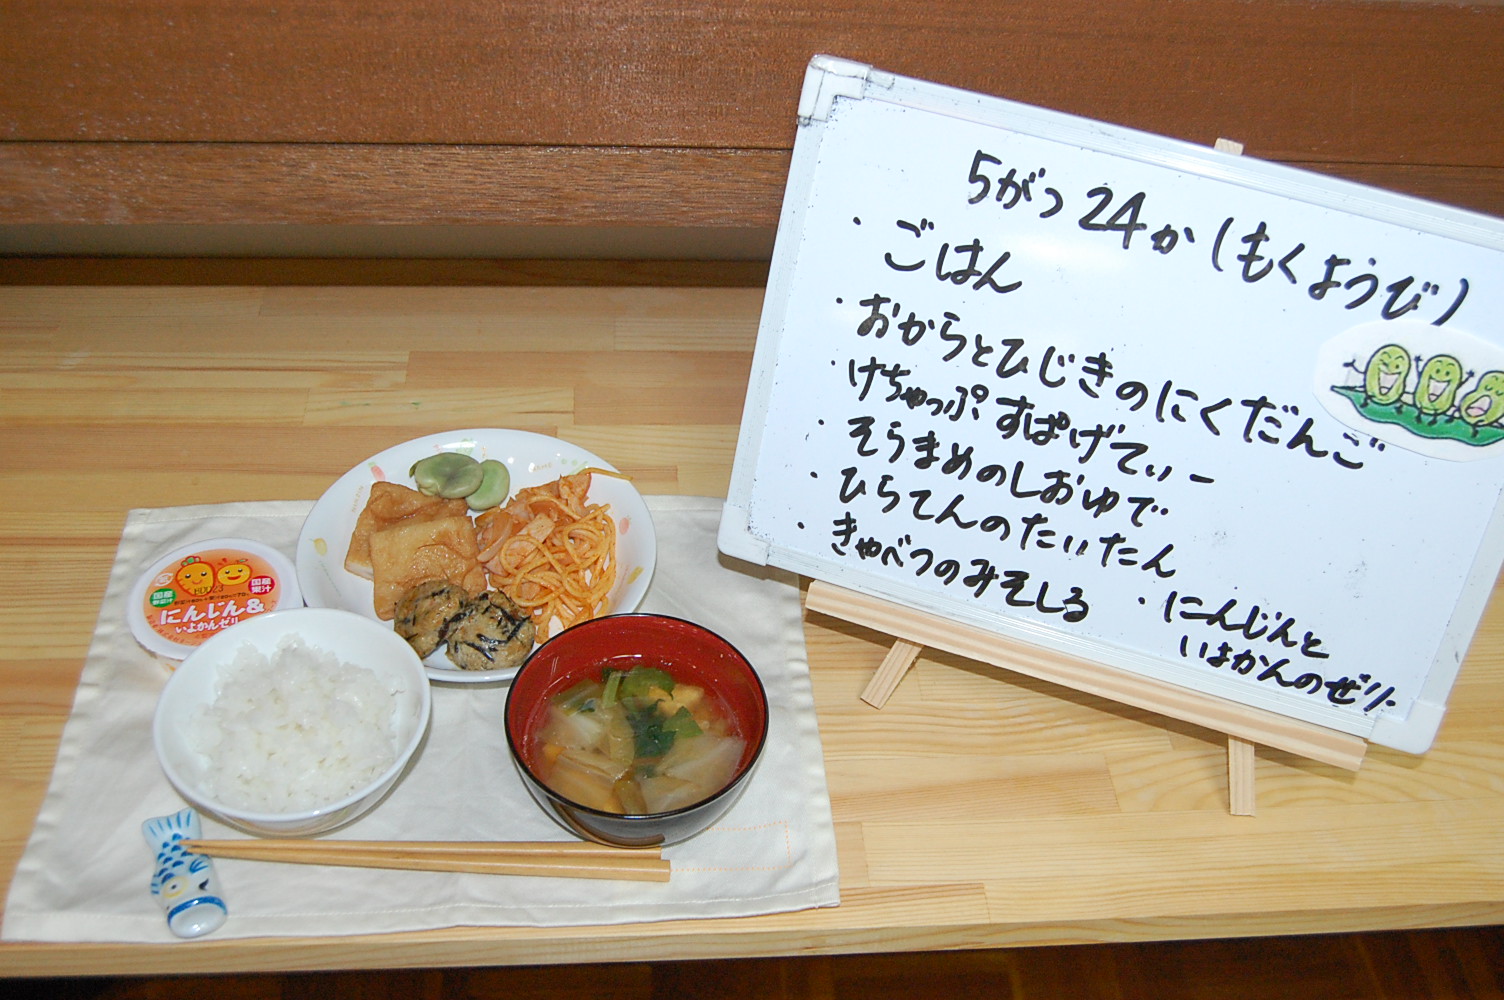 5がつ24か(もくようび)
・ごはん
・おからとひじきのにくだんご
・けちゃっぷすぱげてぃー
・そらまめのしおゆで
・ひらてんのたいたん
・きゃべつのみそしる
・にんじんと
いよかんのぜりー
国産
国産
果汁
にんじん&
いよかんゼリー